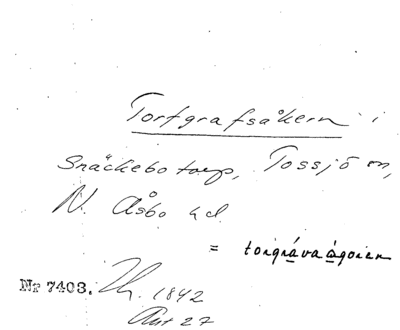 Torfgrafsåkern i
Snäckebo torp, Tossjö sn,
N. Åsbo hd.
= torgrávaágoren
Nr 7403. Lh. 1842
Akt 27